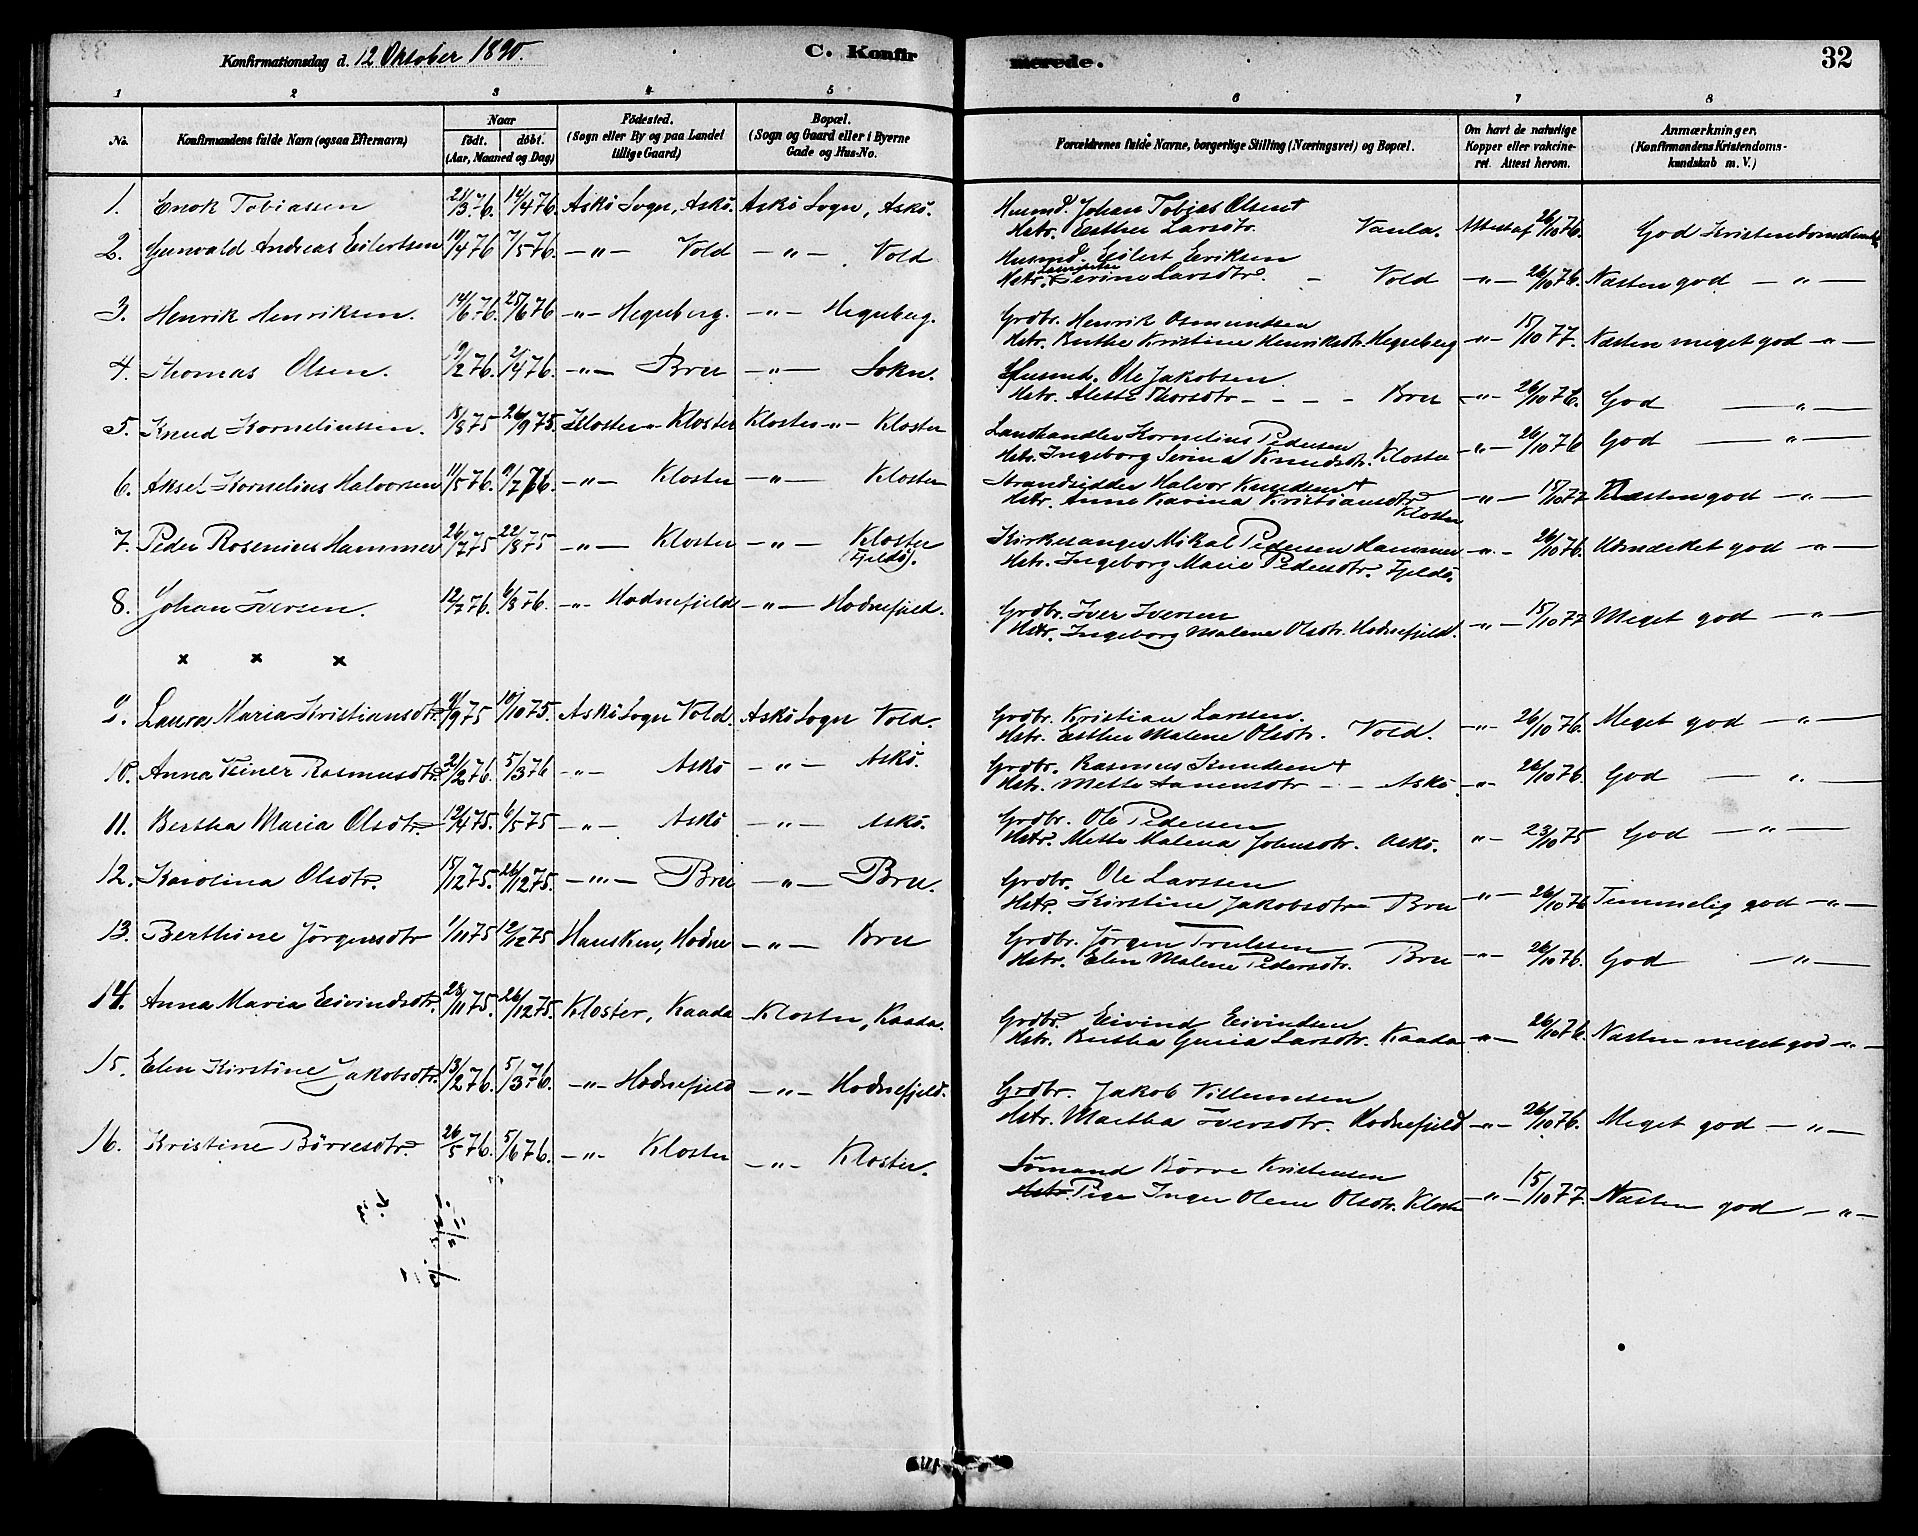 Konfirmationsdag d. 12 Oktober 1890.
C. Konfirmerede.
32
1 2 3 4 5 6 7 8
No.
Konfirmandens fulde Navn (ogsaa Efternavn)
Naar
født. døbt.
(Aar, Maaned og Dag)
Födested.
(Sogn eller By og paa Landet
tillige Gaard)
Bopæl.
(Sogn og Gaard eller i Byerne
Gade og Hus-No.
Forældrenes fulde Navne, borgerlige Stilling (Næringsvei) og Bopæl.
Om havt de naturlige
Kopper eller vakcine-
ret. Attest herom.
Anmærkninger,
(Konfirmandens Kristendoms-
kundskab m. V.)
1. Enok Tobiassen 21/3 76. 14/4 76. Askö Sogn, Askö. Askö Sogn, Askö. Husmd. Johan Tobias Olsen+
Hstr. Esther Larsdtr. Vaula. Attest af 26/10 76. God Kristendomskundsk.
2. Gunvald Andreas Eilertsen 10/4 76 7/5 76. -"- Vold -"- Vold Husmd. Eilert Eriksen
Hstr. Serine Larsdtr. - Vold -"- 26/10 76. Næsten god -"-
3. Henrik Henriksen. 14/6 76. 25/6 76 -"- Hegreberg. -"- Hegreberg. Grdbr. Henrik Osmundsen
Hstr. Berthe Kristine Henriksdtr. Hegreberg -"- 15/10 77. Næsten meget god -"-
4. Thomas Olsen. 9/2 76. 2/4 76. -"- Bru -"- Sokn. Husmd. Ole Jakobsen
Hstr. Alette Thorsdtr - - - - Bru -"- 26/10 76. God -"-
5. Knud Korneliussen. 18/8 75 26/9 75. Kloster " Kloster Kloster -"- Kloster Landhandler Kornelius Pedersen
Hstr. Ingeborg Serina Knudsdtr. Kloster -"- 26/10 76 God -"-
6. Aksel Kornelius Halvorsen 11/5 76. 9/7 76. -"- Kloster -"- Kloster Strandsidder Halvor Knudsen+
Hstr. Anne Karina Kristiansdtr.
Kloster -"- 15/10 77 Næsten god -"-
7. Peder Rosenius Hammer 26/7 75 22/8 75 -"- Kloster -"- Kloster
(Fjeldö). Kirkesanger Mikal Pedersen Hammer
Hstr. Ingeborg Marie Pedersdtr. Fjeldö. -"- 26/10 76. Udmærket god -"-
8. Johan Iversen. 12/7 76. 6/8 76. -"- Hodnefjeld -"- Hodnefjeld. Grdbr. Iver Iversen
Hstr. Ingeborg Malene Olsdtr. Hodnefjeld. -"- 15/10 77 Meget god -"-
x x x
9. Laura Maria Kristiansdtr. 9/9 75 10/10 75. Askö Sogn Vold. Askö Sogn Vold. Grdbr. Kristian Larssen.
Hstr. Esther Malene Olsdtr. Vold. -"- 26/10 76. Meget god -"-
10. Anna Teiner Rasmusdtr. 21/2 76. 5/3 76 -"- Askö -"- Askö. Grdbr. Rasmus Knudsen+
Hstr. Mette Hansdtr - - Askö. -"- 26/10 76. God -"-
11. Bertha Maria Olsdtr. 19/4 75. 6/5 75 -"- Askö -"- Askö. Grdbr. Ole Pedersen
Hstr. Mette Malena Johnsdtr. Askö. -"- 23/10 75 God -"-
12. Karolina Olsdtr. 15/12 75. 26/12 75. -"- Bru -"- Bru. Grdbr. Ole Larssen
Hstr. Kirstine Jakobsdtr Bru -"- 26/10 76 Temmelig god -"-
13. Berthine Jörgensdtr 1/10 75 12/12 75 Hausken, Hodne -"- Bru Grdbr. Jörgen Trulssen
Hstr. Elen Malene Pedersdtr. Bru -"- 26/10 76. God -"-
14. Anna Maria Eivindsdtr. 28/11 75. 26/12 75. Kloster, Kaada Kloster, Kaada. Grdbr. Eivind Eivindsen
Hstr. Bertha Guria Larsdtr. Kaada -"- 26/10 76. Næsten meget god -"-
15. Elen Kirstine Jakobsdtr. 13/2 76. 5/3 76. -"- Hodnefjeld -"- Hodnefjeld. Grdbr. Jakob Villumsen
Hstr. Martha Iversdtr. Hodnefjeld -"- 26/10 76. Meget god -"-
16. Kristine Börresdtr. 26/5 76. 5/6 76. -"- Kloster -"- Kloster. Sömand Börre Kristensen
Pige Inger Olene Olsdtr. Kloster -"- 15/10 77. Næsten god -"-